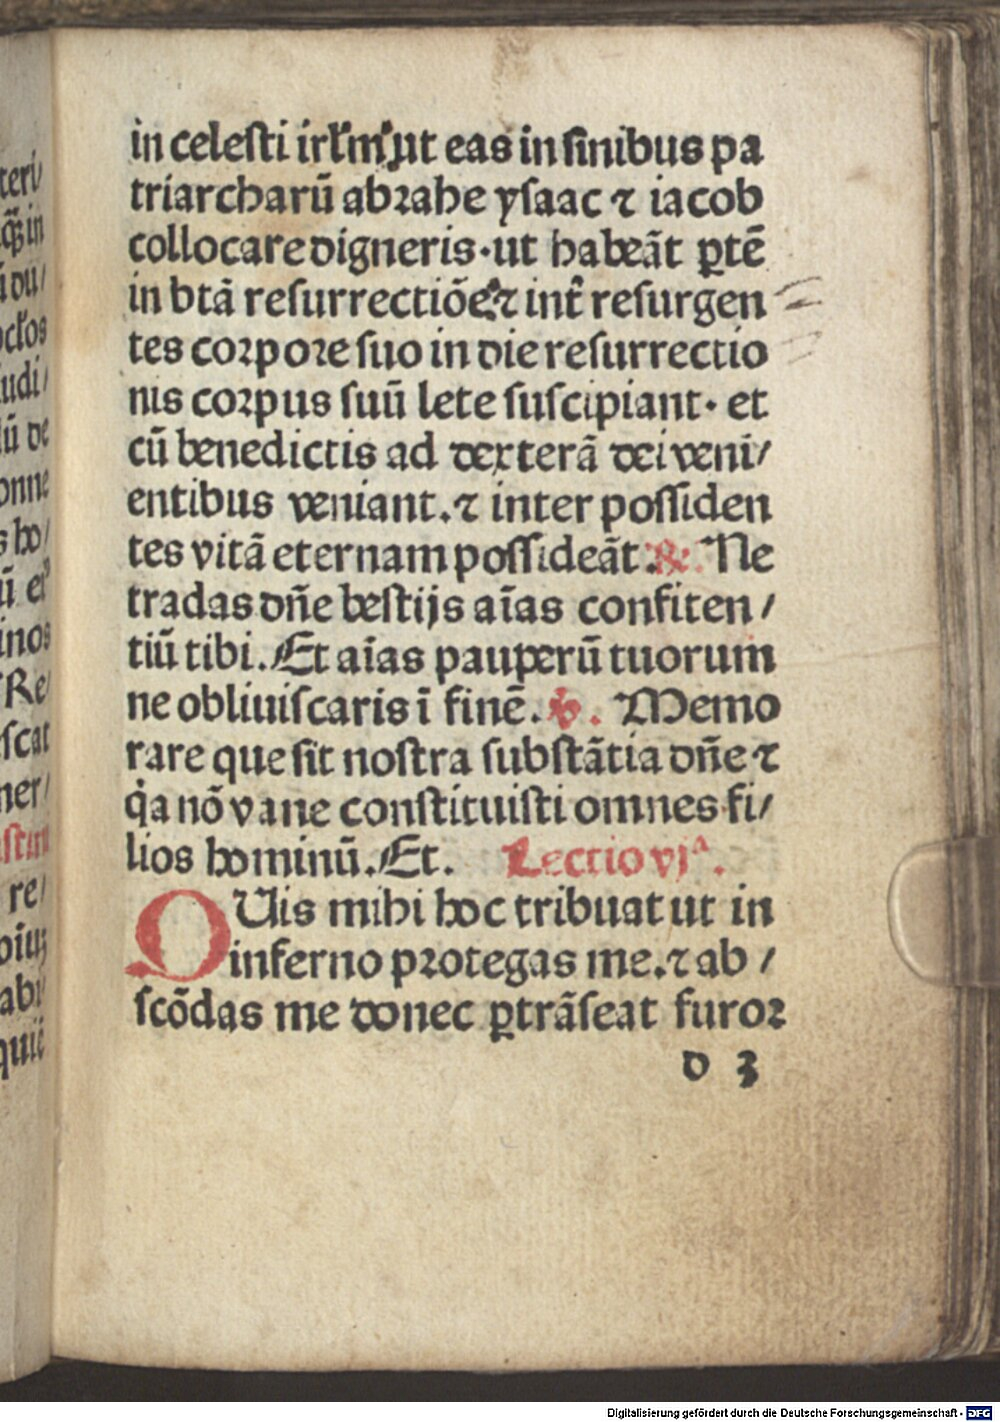 in celesti irl'm ut eas in sinibus pa
triarcharū abrahe ysaac ⁊ iacob
collocare digneris·ut habeāt ꝑtē
in btā resurrectiōe ⁊ int̄ resurgen
tes corpore suo in die resurrectio
nis corpus suū lete suscipiant· et
cū benedictis ad dexterā dei veni/
entibus veniant.⁊ inter possiden
tes vitā eternam possideāt. ℟. Ne
tradas dñe bestijs aīas confiten /
tiū tibi. Et aīas pauperū tuorum
ne obliuiscaris ī finē. ℣. Memo
rare que sit nostra substātia dñe ⁊
qͥa nō vane constituisti omnes fi/
lios hominū. Et. Lectio vjª.
QUis mihi hoc tribuat ut in
inferno protegas me.⁊ ab /
scōdas me donec ꝑtrāseat furor
d 3
teri/
in
ū du/
udi/
lū de
onne
s ho/
inos
Re/
scat
ner/
re/
abr
Digitalisierung gefördert durch die Deutsche Forschungsgemeinschaft - DFG